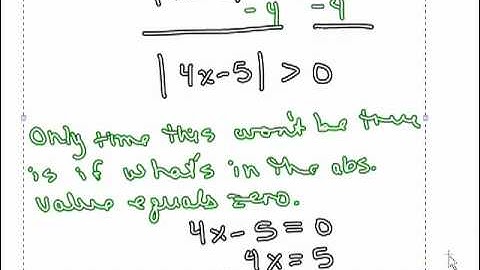 - 4 - 4
| 4x-5 | > 0
Only time this won't be true
is if what's in the abs.
value equals zero.
4x - 5 = 0
4x = 5